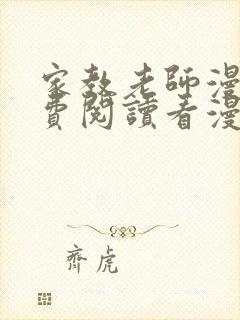 家教老師漫
費閱讀看漫
齊虎